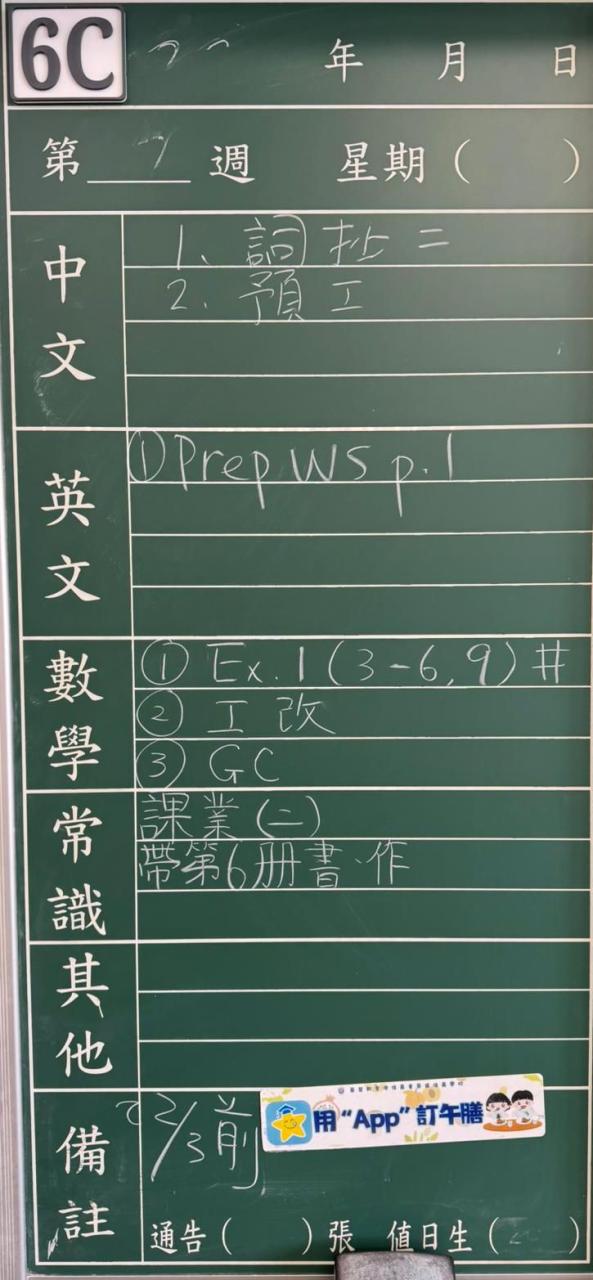 6C 年 月 日
第 週 星期( )
中文
1、詞抄二
2. 預工
英文
① Prep WS p.1
數學
① Ex.1 (3-6, 9) #
② 工改
③ GC
常識
課業(二)
帶第6册書、作
其他
備註
22/3前
用“App”訂午膳
通告( )張 值日生( )